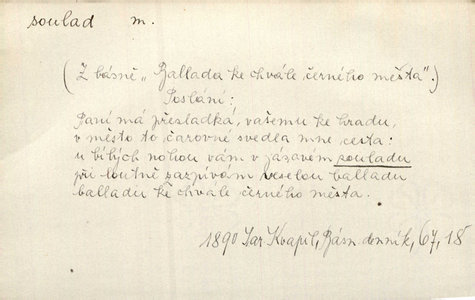 soulad m.
(Z básně „Ballada ke chvále černého města".)
Poslání:
Paní má přesladká, vašemu ke hradu,
v město to čarovné svedla mne cesta:
u bílých nohou vám v souladu
při loutně zazpívám veselou balladu
balladu ke chvále černého města.
1890 Jar. Kvapil, Básn. denník, 67, 18